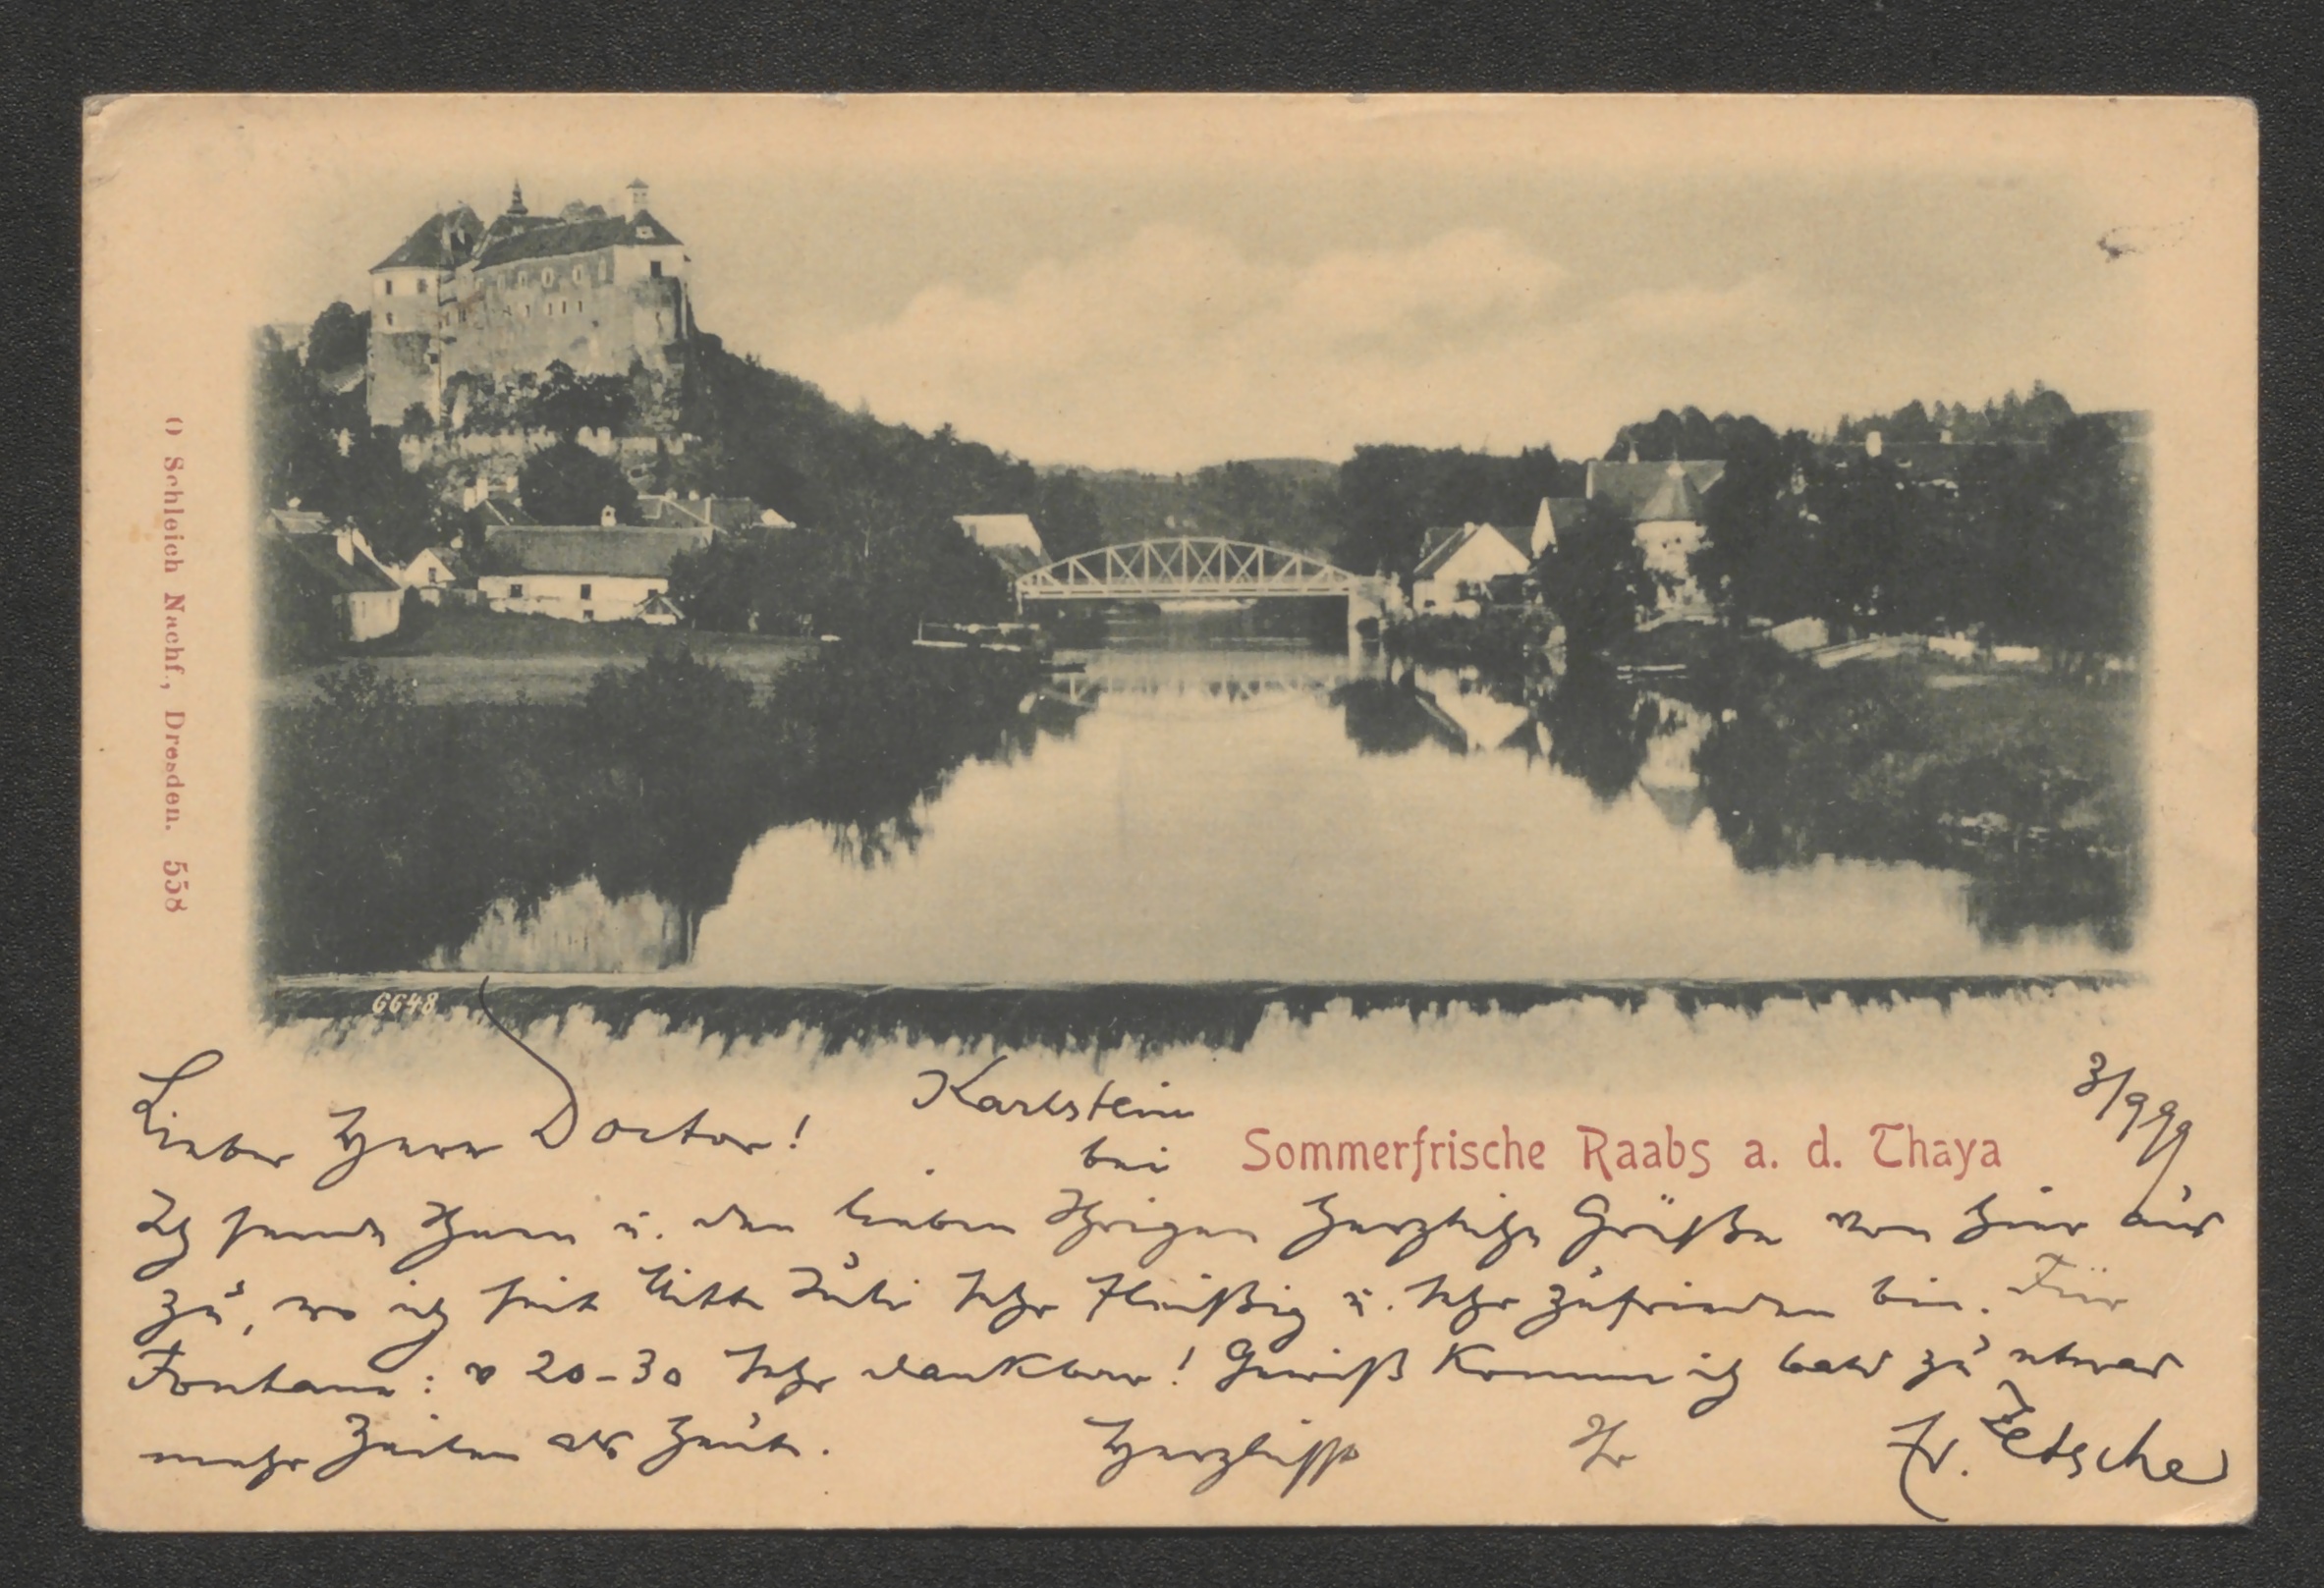 O Schleich Nachf., Dresden. 558
6648
Lieber Herr Doctor!
Karlstein
bei
Sommerfrische Raabs a. d. Thaya
3/9 99
Ich sende Ihnen u. den lieben Ihrigen herzliche Grüße von hier aus
zu, wo ich seit Mitte Juli sehr fleißig u. sehr zufrieden bin. Für
Fontane: v 20-30 sehr dankbar! Gewiß komme ich bald zu etwas
mehr Zeilen als heute.
Herzlichst
Ihr
Zetsche